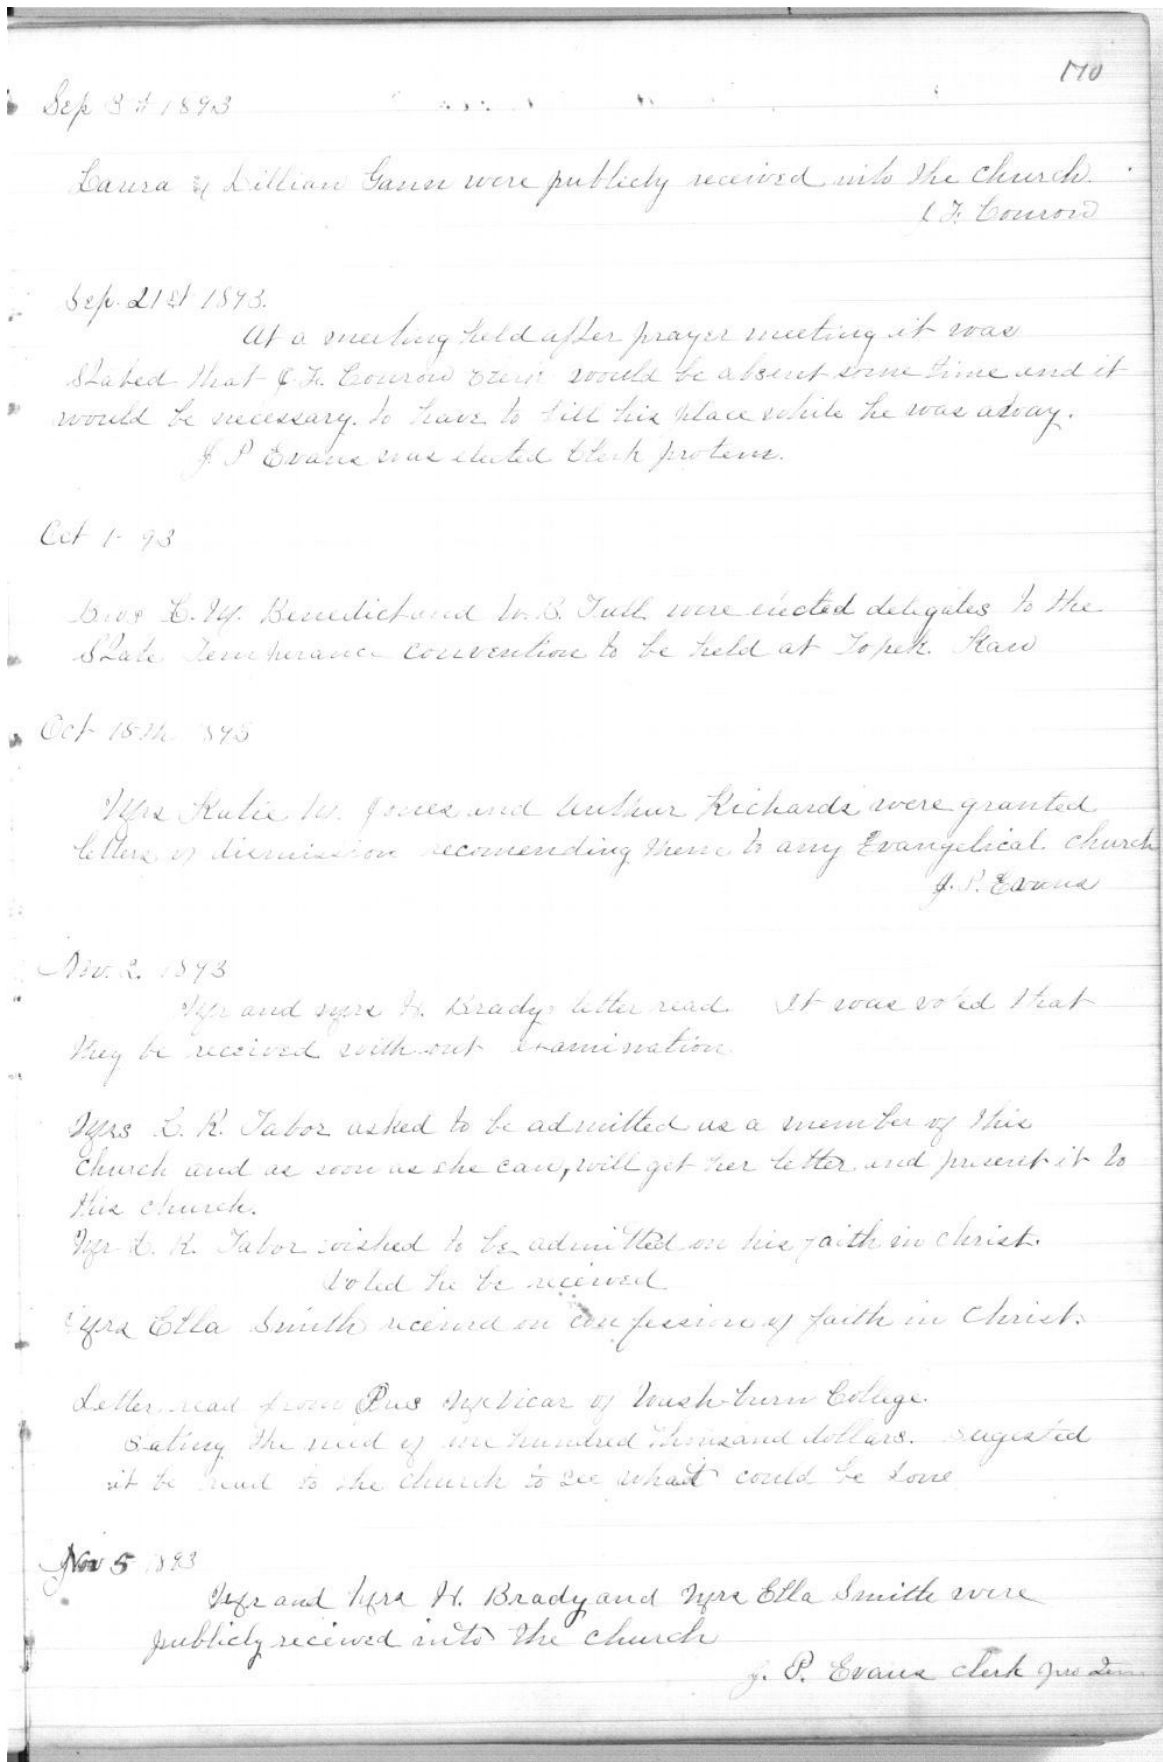 170
Sep 3d 1893
Laura & Lillian Gann were publicly received into the church.
J F. Conrow
Sep. 21st 1893.
At a meeting held after prayer meeting it was
Stated that J F. Conrow Clerk would be absent some time and it
would be necessary to have to fill his place while he was away.
J. P Evans was elected Clerk protem.
Oct 1- 93
Bros M. Benedict and W. B. Tull were elected delegates to the
State Temperance convention to be held at Topek. Kan
Oct 18th 1893
Mrs Katie W. Jones and Arthur Richards were granted
letters of dismission recomending them to any Evangelical church
J. P. Evans
Nov. 2. 1893
Mr and Mrs H. Bradys letter read. It was voted that
they be received without examination.
Mrs L. R. Tabor asked to be admitted as a member of this
church and as soon as she can, will get her letter and present it to
this church.
Mr L. R. Tabor wished to be admitted on his faith in Christ.
Voted he be received
Mrs Ella Smith received on confession of faith in Christ.
Letter read from Pres McVicar of Washburn College.
Sating the need of one hundred thousand dollars. Sugested
it be read to the church to see what could be done
Nov 5 1893
Mr and Mrs H. Brady and Mrs Ella Smith were
publicly received into the church
J. P. Evans clerk pro tem